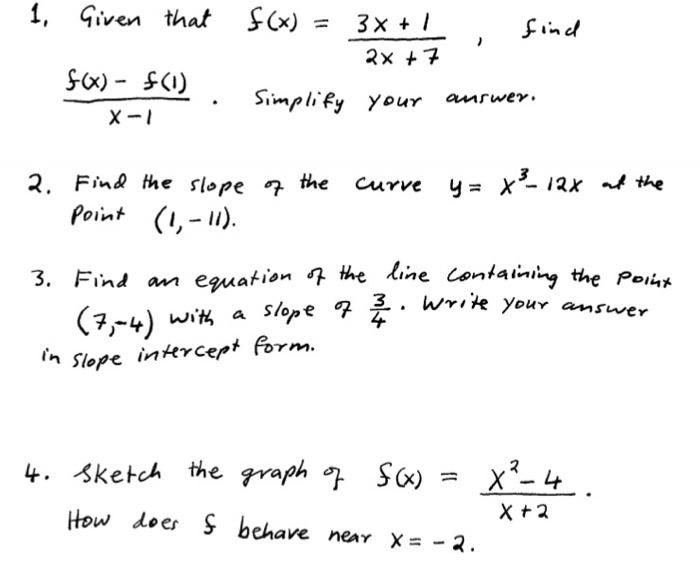 1. Given that f(x) = (3x + 1)/(2x + 7), find
(f(x) - f(1))/(x - 1). Simplify your answer.
2. Find the slope of the curve y = x³ - 12x at the
Point (1, -11).
3. Find an equation of the line containing the point
(7,-4) with a slope of 3/4. Write your answer
in slope intercept form.
4. Sketch the graph of f(x) = (x² - 4)/(x + 2).
How does f behave near x = -2.